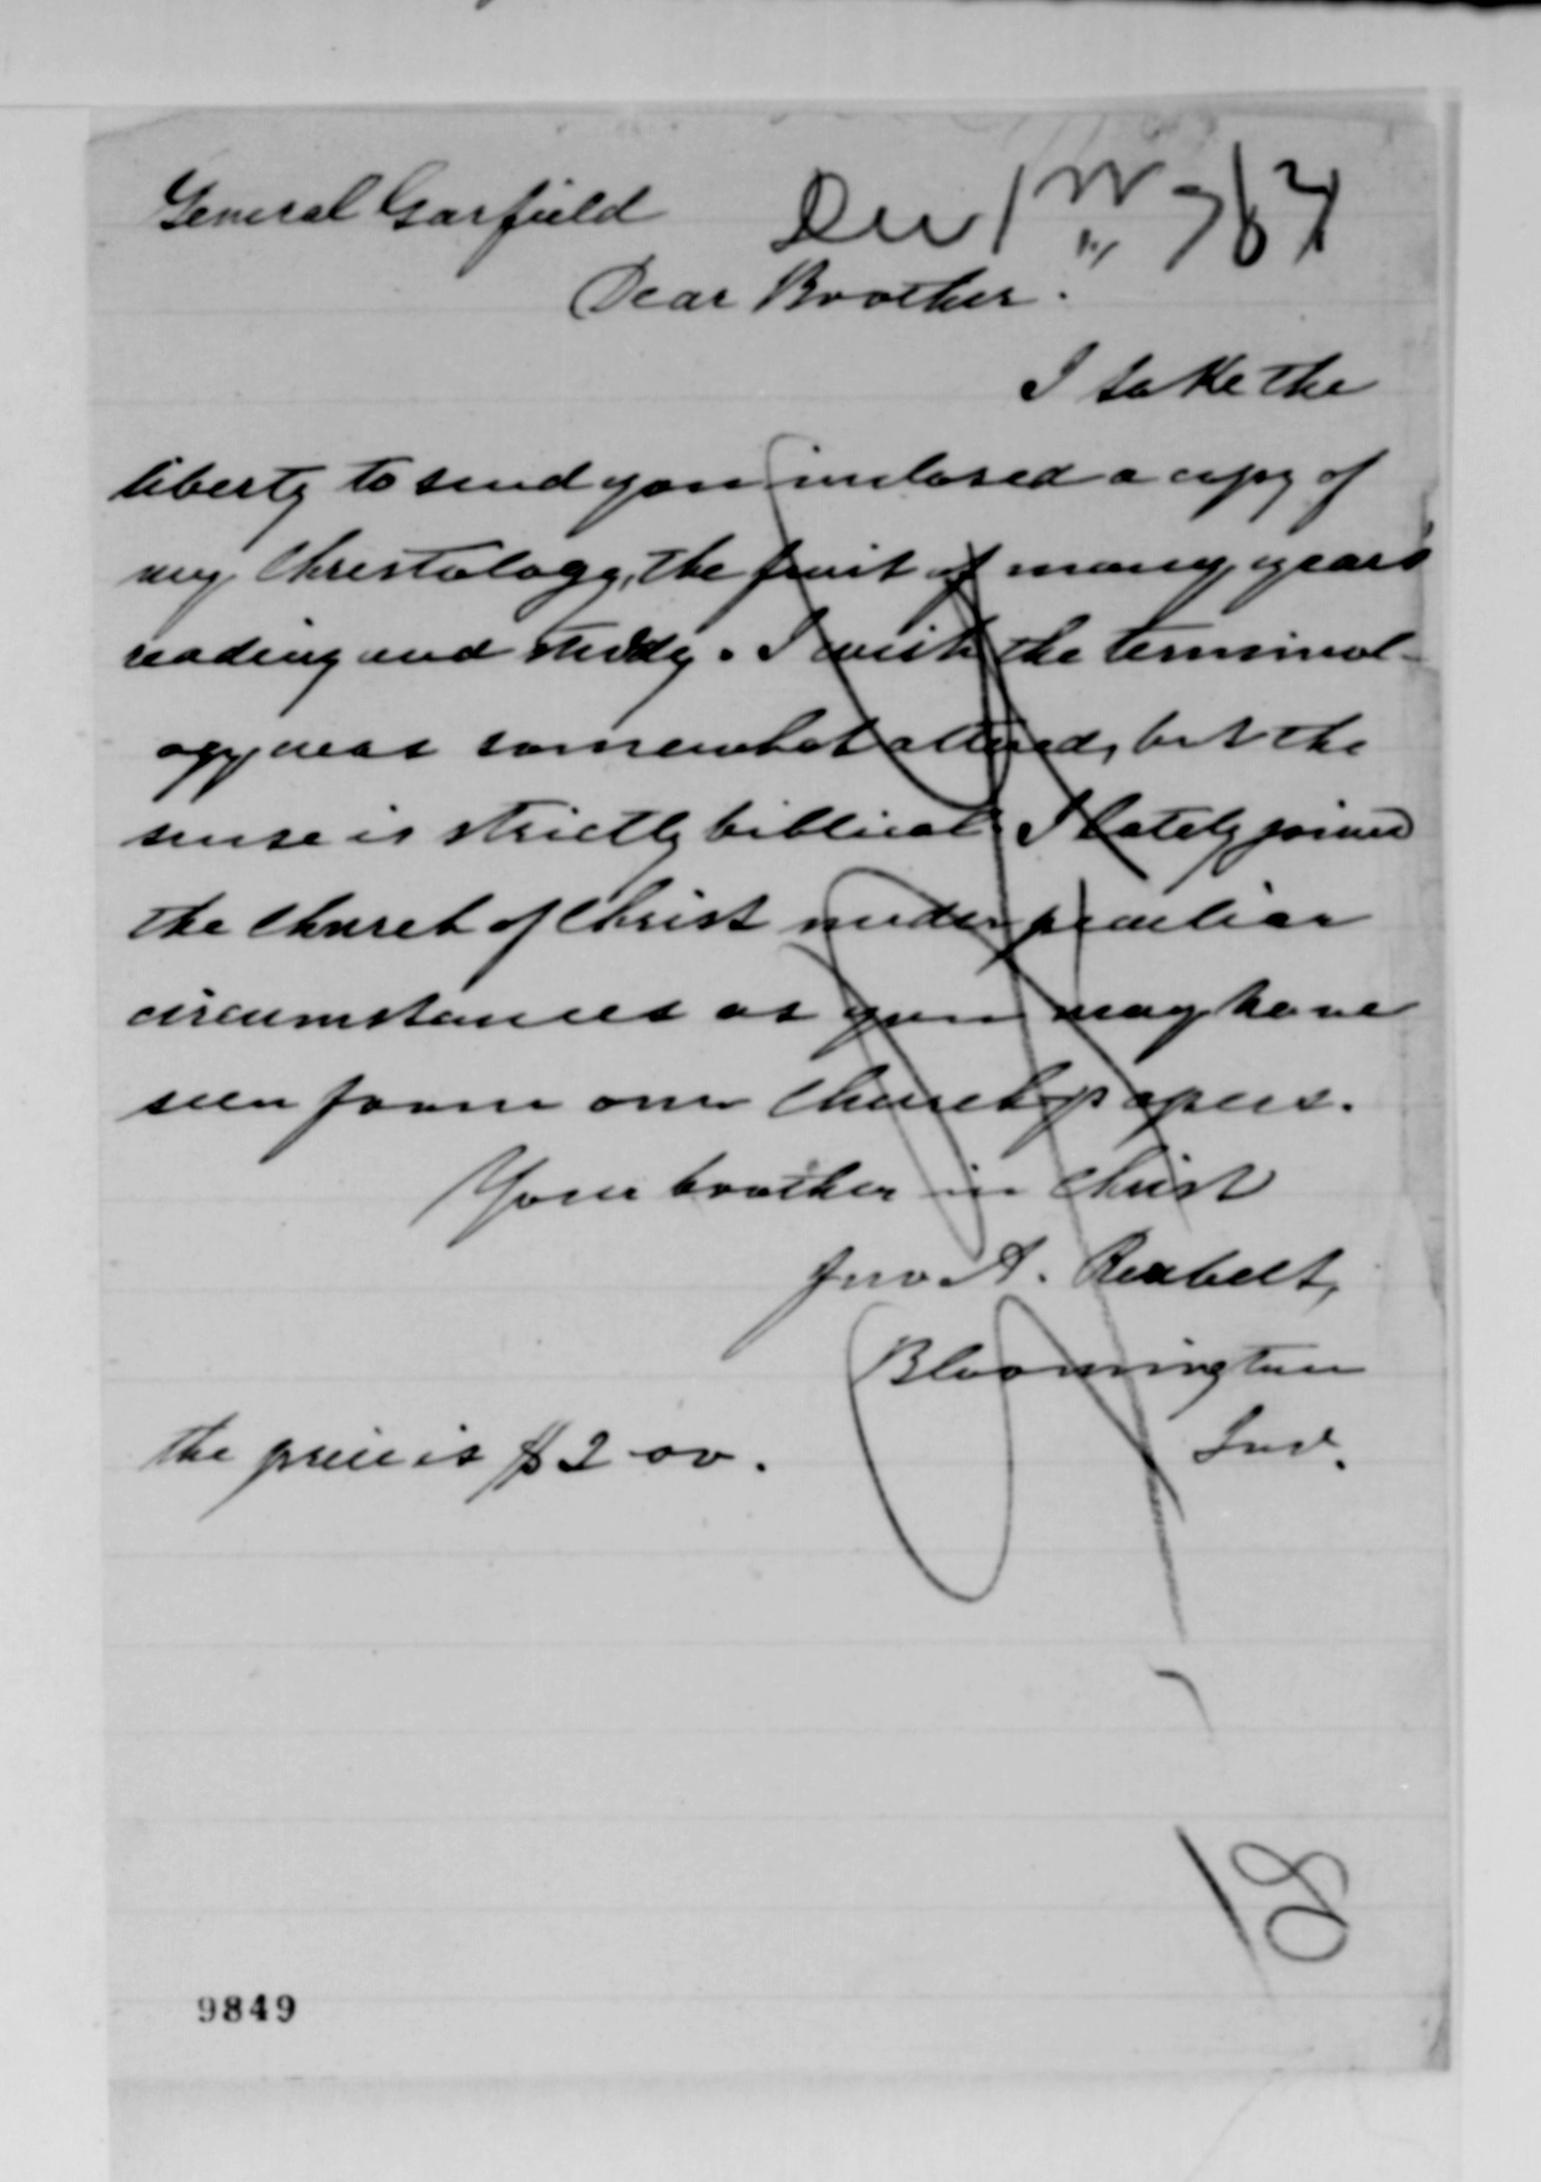 General Garfield
Dear Brother.
I take the
liberty to send you inclosed a copy of
my Christology, the fruit of many years
reading and study. I wish the terminol-
ogy was somewhat altered, but the
sense is strictly biblical. I lately joined
the Church of Christ under peculiar
circumstances as you may have
seen from our Church papers.
Your brother in Christ
Jno A.
Bloomington
Ind.
the price is $2 00.
18
9849